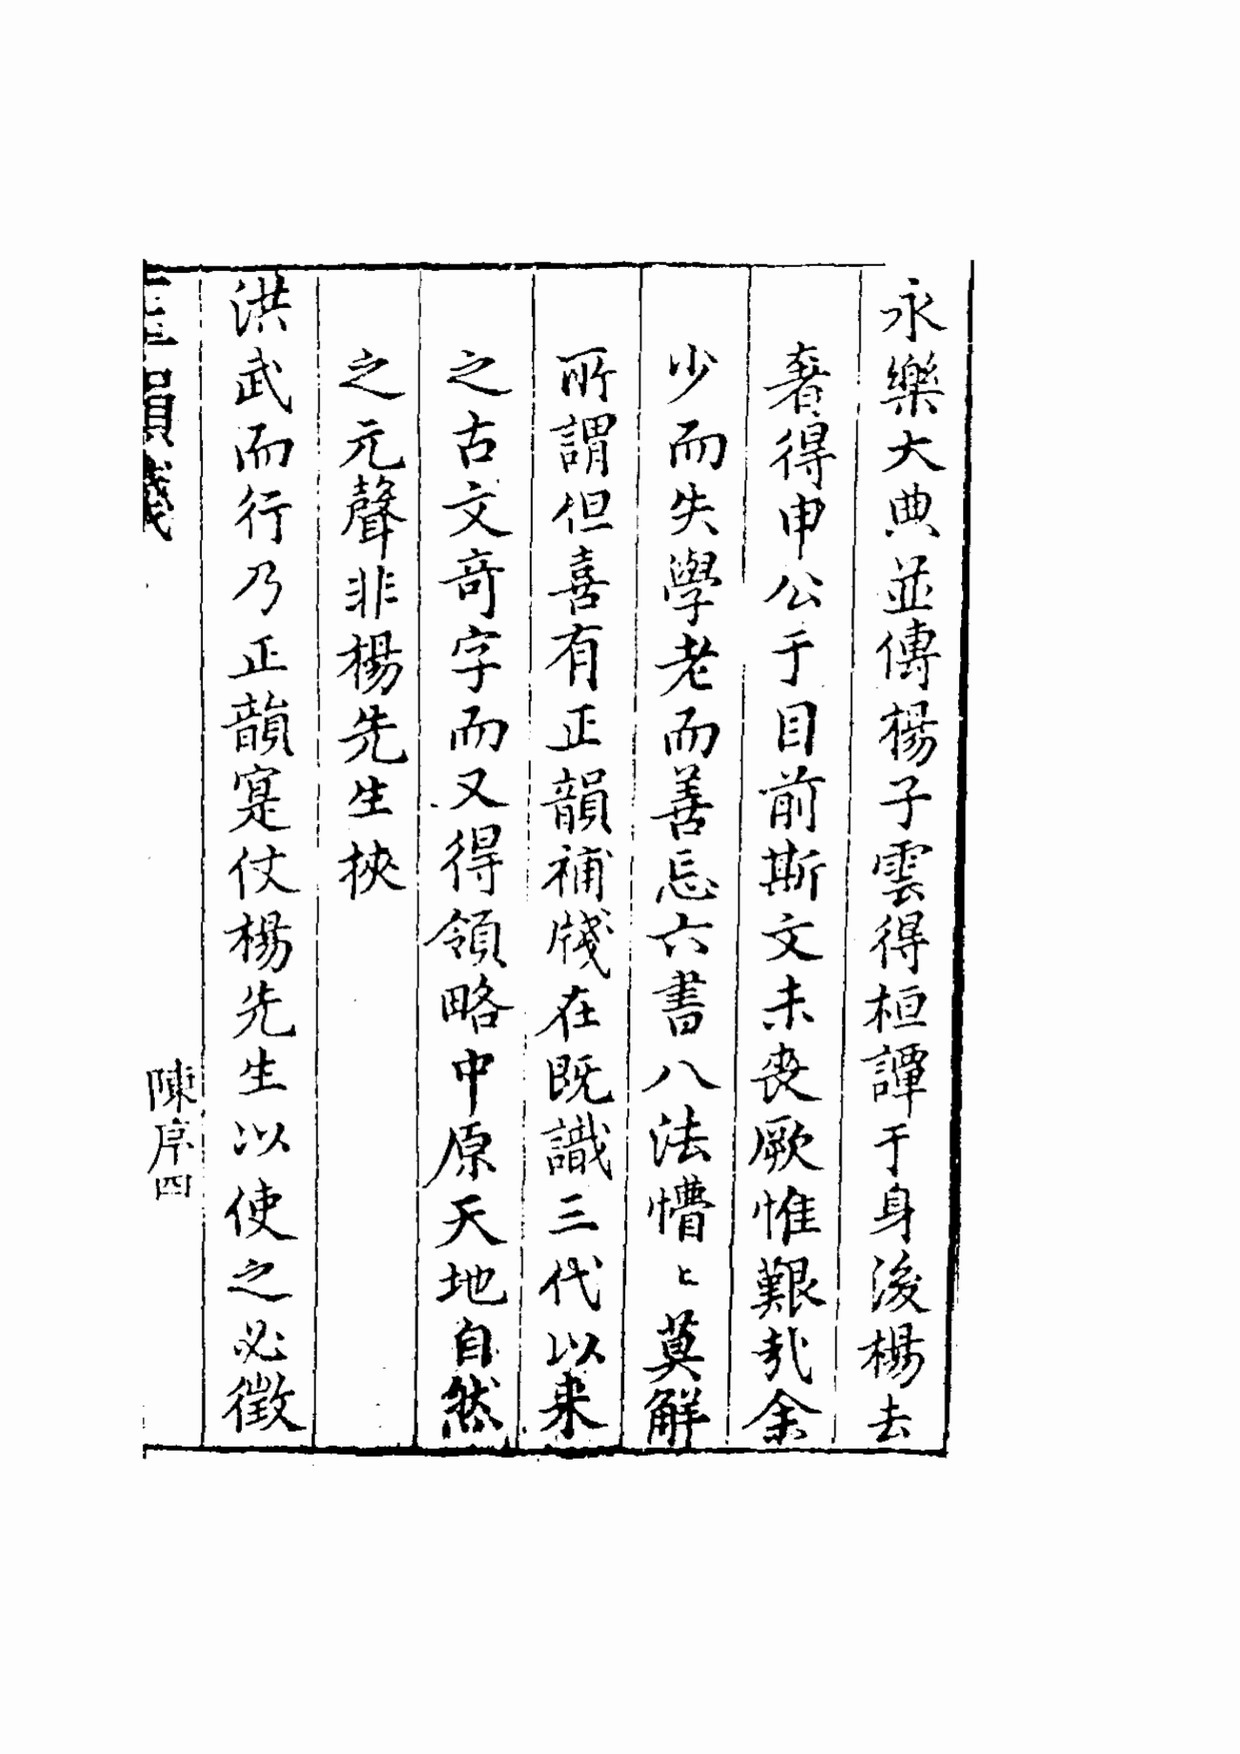 永樂大典並傳楊子雲得桓譚于身後楊去
奢得申公于目前斯文未喪厥惟艱哉余
少而失學老而善忘六書八法懵〻莫解
所謂但喜有正韻補牋在既識三代以来
之古文竒字而又得領略中原天地自然
之元聲非楊先生挾
洪武而行乃正韻寔仗楊先生以使之必徵
韻箋
陳序四